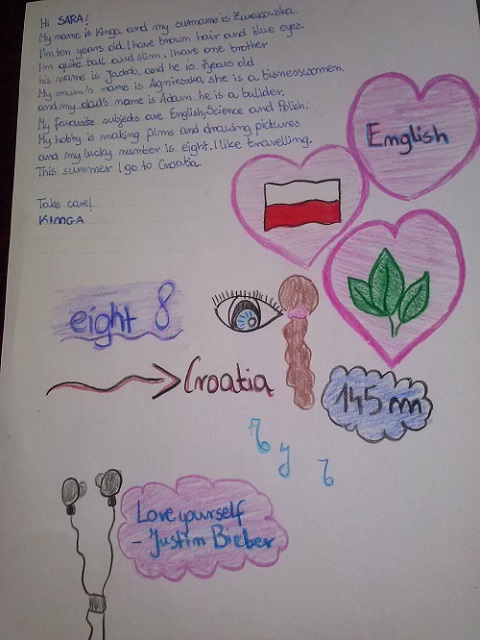 Hi SARA!
My name is Kinga and my surname is
I'm ten years old. I have brown hair and blue eyes.
I'm quite tall and slim. I have one brother
his name is and he is years old
My mum's name is Agnieszka she is a bisnesswomen.
and my dad's name is Adam he is a bulider.
My favourite subjects are English, Science and Polish.
My hobby is making films and drawing pictures
and my lucky number is eight. I like travelling.
This summer I go to Croatia
Take care!
KINGA
English
eight 8
Croatia
145
Love yourself
- Justin Bieber